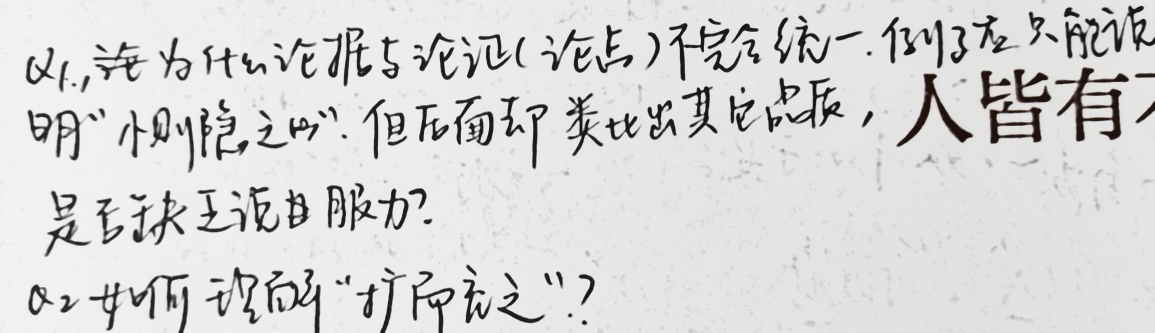 Q1., 为什么论据与论证(论点)不完全统一.例子左只能说
明"恻隐之心".但后面却类比出其它品质,
人皆有不
是否缺乏说服力?
Q2 如何理解"扩而充之"?